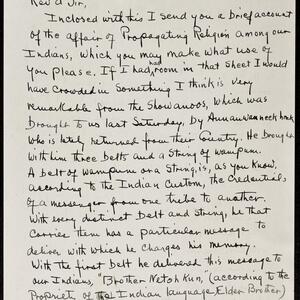 Rev'd Sir,
Inclosed with this I send you a brief account
of the affair of Propagating Religion among our
Indians, which you may make what use of
You Please. If I had room in that Sheet I would
have Crowded in Something I think is very
remarkable from the Showanoos, which was
Brought To us last Saturday, by Amauwanneck
who is lately returned from their Country. He brought
With him three Belts and a String of wampum.
A belt of wampum or a String, is, as you Know,
according to the Indian Custom, the Credentials
of a messenger from one tribe to another.
With every distinct Belt and String, he that
Carries them has a particular message to
deliver with which he Charges his memory.
With the first Belt he delivered this message to
our Indians, "Brother Netohkun," (according to the
Propriety of the Indian language, Elder Brother)